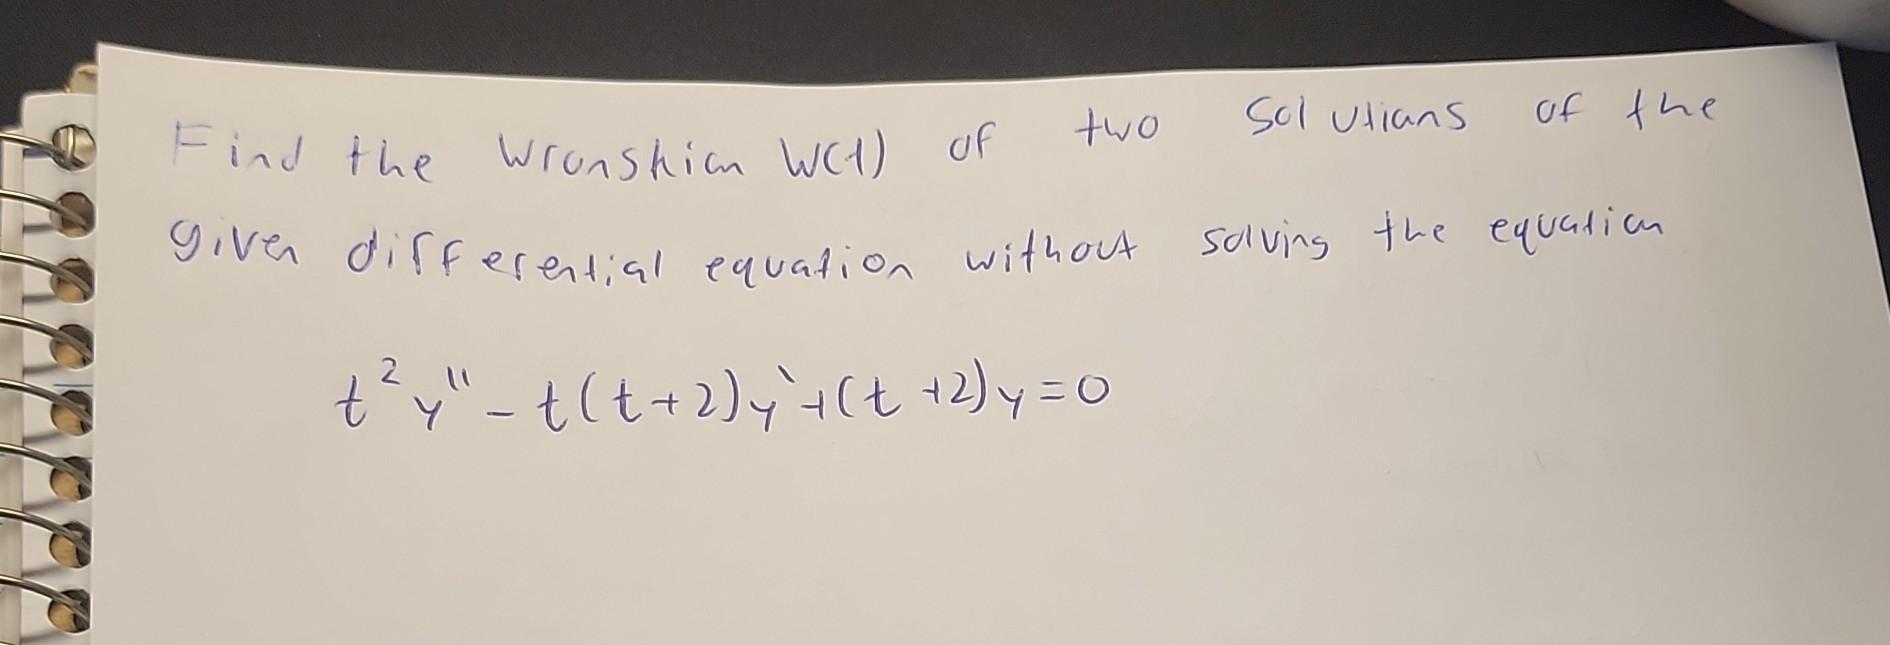 Find the Wronskian W(t) of two solutions of the
given differential equation without solving the equation
t²y" - t(t+2)y' + (t+2)y = 0